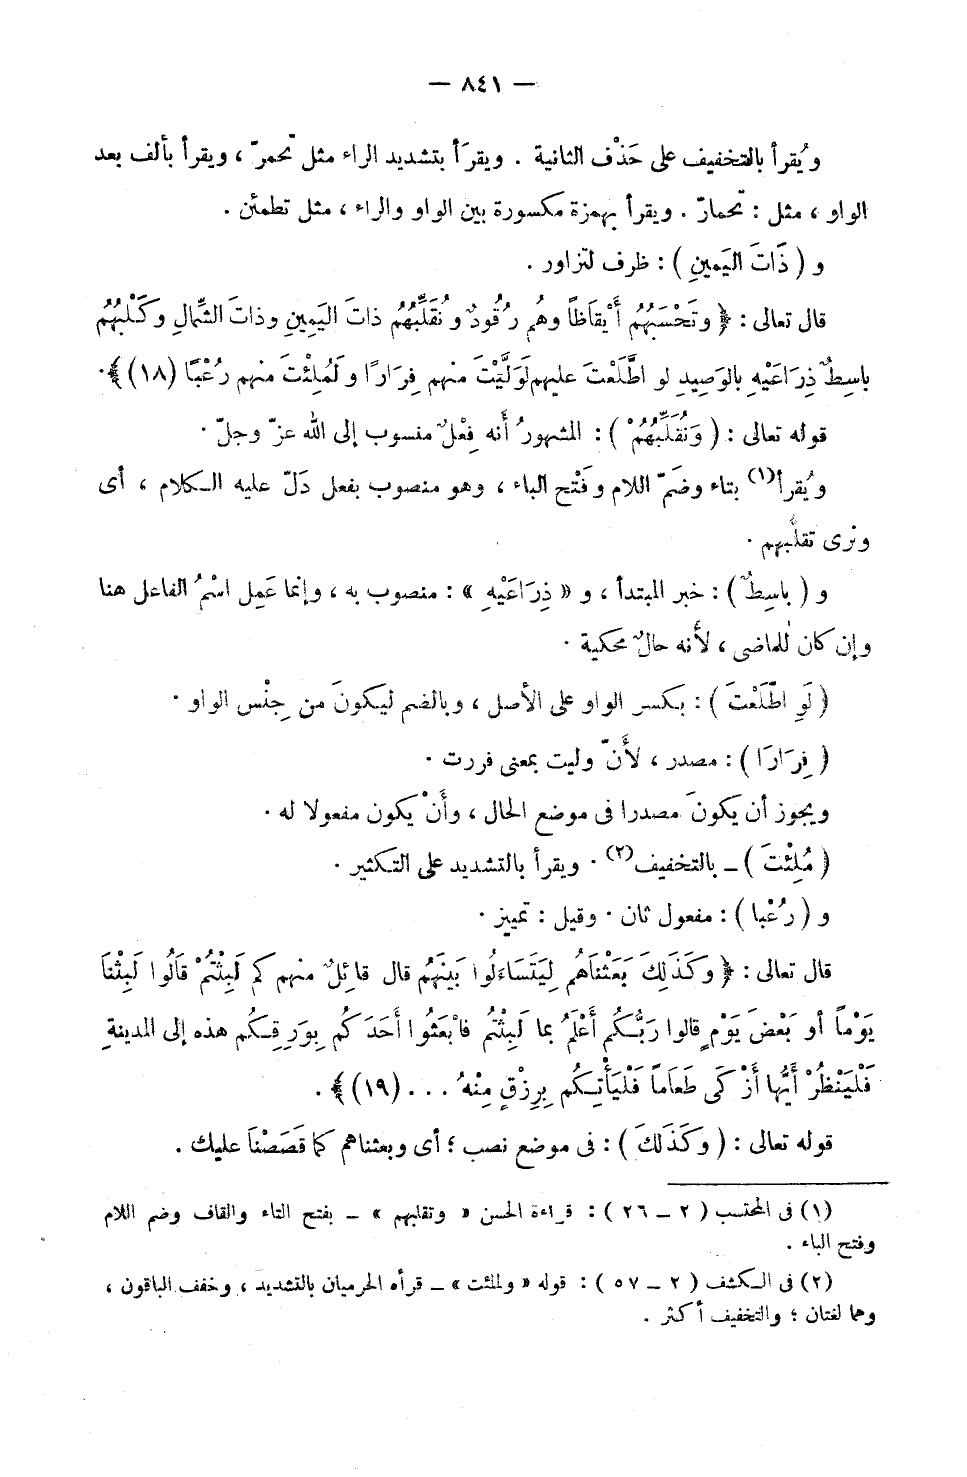 — ٨٤١ —
ويُقرأ بالتخفيف على حَذْف الثانية . ويقرَأ بتشديد الراء مثل تحمرّ ، ويقرأ بألف بعد
الواو ، مثل : تحمارّ . ويقرأ بهمزة مكسورة بين الواو والراء ، مثل تطمئن .
و ( ذَاتَ اليَمينِ ) : ظرف لتزاور .
قال تعالى : ﴿ وتَحْسَبُهُم أَيْقَاظًا وهُم رُقُودٌ ونُقَلِّبُهُم ذاتَ اليَمِينِ وذاتَ الشِّمالِ وكَلْبُهُم
باسِطٌ ذِرَاعَيْهِ بالوَصِيدِ لو اطَّلَعْتَ عليهم لَوَلَّيْتَ منهم فِرَارًا ولَمُلِئْتَ منهم رُعْبًا (١٨)﴾ .
قوله تعالى : ( وَنُقَلِّبُهُمْ ) : المشهورُ أنه فِعْلٌ منسوب إلى الله عزّ وجلّ .
ويُقرأ(١) بتاء وضَمّ اللام وفَتْح الباء ، وهو منصوب بفعل دَلّ عليه الكلام ، أى
ونرى تقلُّبهم .
و ( باسِطٌ ) : خبر المبتدأ ، و « ذِرَاعَيْهِ » : منصوب به ، وإنما عَمِل اسْمُ الفاعل هنا
وإن كان للماضى ، لأنه حالٌ محكية .
( لَوِ اطَّلَعْتَ ) : بكسر الواو على الأصل ، وبالضم ليكونَ من جِنْس الواو .
( فِرَارًا ) : مصدر ، لأَنّ وليت بمعنى فررت .
ويجوز أن يكونَ مصدرا فى موضع الحال ، وأَنْ يكون مفعولا له .
( مُلِئْتَ ) ـ بالتخفيف(٢) . ويقرأ بالتشديد على التكثير .
و ( رُعْبا ) : مفعول ثان . وقيل : تمييز .
قال تعالى : ﴿ وكَذَلِكَ بَعَثْنَاهُم لِيَتَسَاءَلُوا بَيْنَهُم قال قائِلٌ منهم كم لَبِثْتُمْ قَالُوا لَبِثْنَا
يَوْماً أو بَعْضَ يَوْمٍ قالوا رَبُّكُم أَعْلَمُ بما لَبِثْتُم فابْعَثُوا أَحَدَكُم بِوَرِقِكُم هذه إلى المدينةِ
فَلْيَنْظُرْ أيُّها أَزْكَى طَعَاماً فَلْيَأْتِكُم بِرِزْقٍ مِنْهُ ... (١٩)﴾ .
قوله تعالى : ( وكَذَلكَ ) : فى موضع نصب ؛ أى وبعثناهم كما قَصَصْنَا عليك .
(١) فى المحتسب ( ٢ ـ ٢٦ ) : قراءة الحسن « وتقلبهم » ـ بفتح التاء والقاف وضم اللام
وفتح الباء .
(٢) فى الكشف ( ٢ ـ ٥٧ ) : قوله « ولملئت » ـ قرأه الحرميان بالتشديد ، وخفف الباقون ،
وهما لغتان ؛ والتخفيف أكثر .